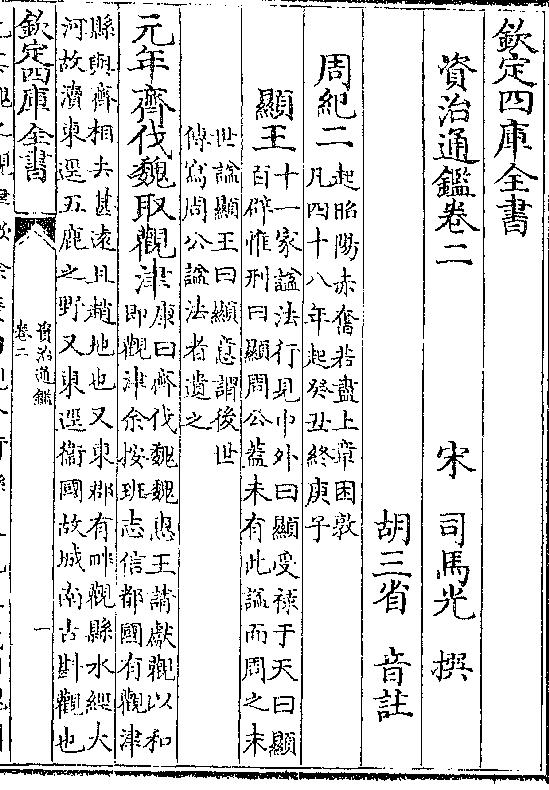 欽定四庫全書
資治通鑑卷二
宋 司馬光 撰
胡三省 音註
周紀二起昭陽赤奮若盡上章困敦
凡四十八年起癸丑終庚子
顯王十一家諡法行見中外曰顯受祿于天曰顯
百辟惟刑曰顯周公葢未有此諡而周之末
世諡顯王曰顯意謂後世
傳寫周公諡法者遺之
元年齊伐魏取觀津康曰齊伐魏魏惠王請獻觀以和
即觀津余按班志信都國有觀津
縣與齊相去甚遠且趙地也又東郡有畔觀縣水經大
河故瀆東逕五鹿之野又東逕衛國故城南古斟觀也
欽定四庫全書
資治通鑑
卷二
一